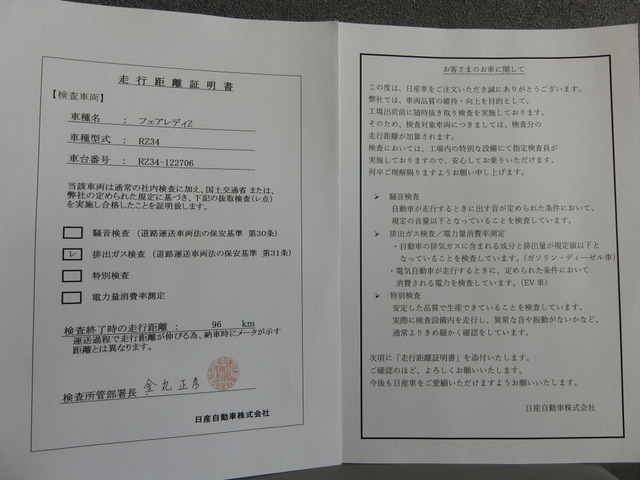 走行距離証明書
【検査車両】
車種名 : フェアレディZ
車種型式 : RZ34
車台番号 : RZ34-122706
当該車両は通常の社内検査に加え、国土交通省 または、
弊社の定められた規定に基づき、下記の抜取検査(レ点)
を実施し合格したことを証明致します。
騒音検査 (道路運送車両法の保安基準 第30条)
レ 排出ガス検査 (道路運送車両法の保安基準 第31条)
特別検査
電力量消費率測定
検査終了時の走行距離 : 96 km
運送過程で走行距離が伸びる為、納車時にメータが示す
距離とは異なります。
検査所管部署長 金丸正彦
日産自動車株式会社
お客さまのお車に関して
この度は、日産車をご注文いただき誠にありがとうございます。
弊社では、車両品質の維持・向上を目的として、
工場出荷前に随時抜き取り検査を実施しております。
そのため、検査対象車両につきましては、検査分の
走行距離が加算されます。
検査においては、工場内の特別な設備にて指定検査員が
実施しておりますので、安心してお乗りいただけます。
何卒ご理解賜りますようお願い申し上げます。
➢ 騒音検査
自動車が走行するときに出す音が定められた条件において、
規定の音量以下となっていることを検査しています。
➢ 排出ガス検査／電力量消費率測定
・自動車の排気ガスに含まれる成分と排出量が規定値以下と
なっていることを検査しています。(ガソリン・ディーゼル車)
・電気自動車が走行するときに、定められた条件において
消費される電力を検査しています。(EV車)
➢ 特別検査
安定した品質で生産できていることを検査しています。
実際に検査設備内を走行し、異常な音や振動がないかなど、
通常よりきめ細かく確認をしています。
次項に「走行距離証明書」を添付いたします。
ご確認のほど、よろしくお願いいたします。
今後も日産車をご愛顧いただけますようお願いいたします。
日産自動車株式会社